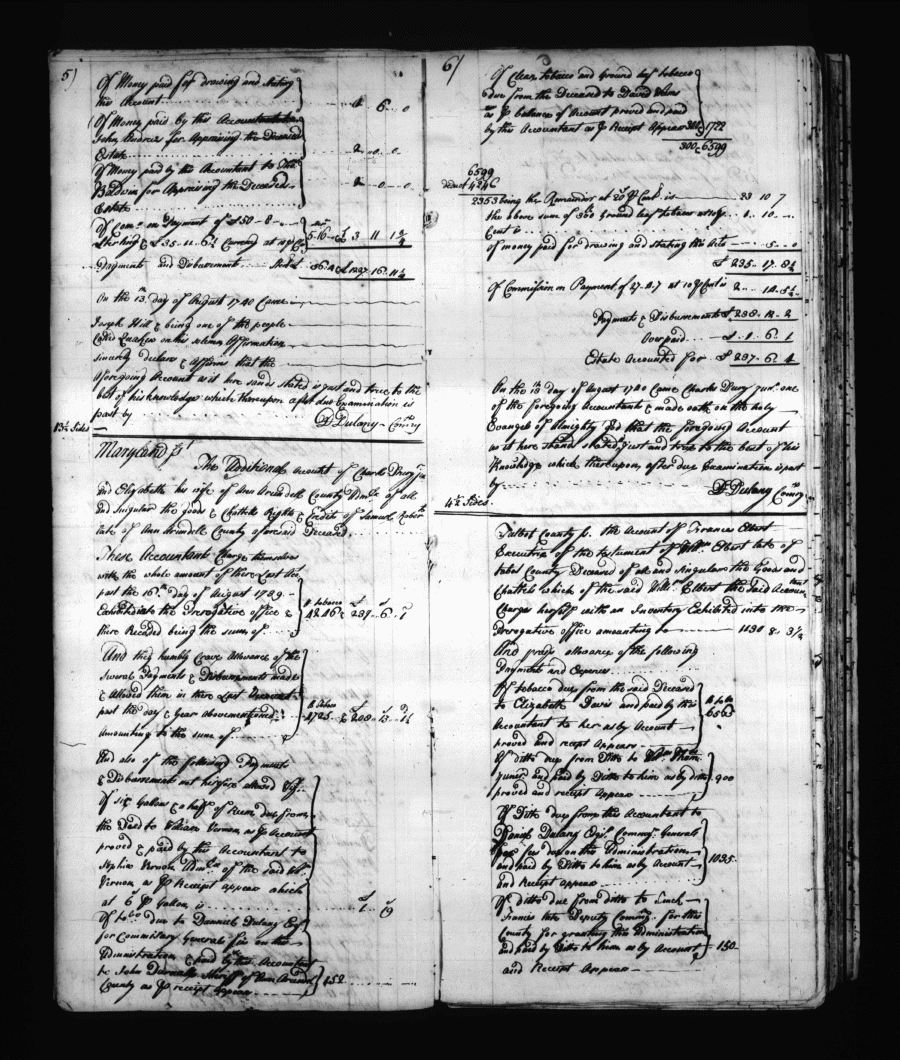 5)
Of Money paid for drawing and stating
this Account ... 6 .. 0
Of Money paid by this Accountant to
John Andrews for Appraising the Deceased
Estate ... 2 .. 0 .. 0
Of Money paid by the Accountant to
Baldwin for Appraising the Deceased
Estate ... 2 .. 0 .. 0
Of Com.n on Payment of £50-8
Sterling & £35-11-6½ Currency at 10 P Ct 5-16 & 3 11
Payments and Disbursement
On the 13th day of August 1740 Came
Joseph Hill & being one of the people
Called Quakers on his solemn Affirmation
sincerely declare & Affirms that the
Aforegoing Account as it here stands stated is just and true to the
best of his knowledge which thereupon after due Examination is
past by D Dulany Comry
13½ Sides
Maryland ss
The Additional Account of Charles Drury Jr
and Elizabeth his wife of Ann Arundell County Adm.rs of all
and singular the goods & Chattels Rights & Credits of Samuel
late of Ann Arundell County aforesaid Deceased.
These Accountants Charge themselves
with the whole amount of there Last Acc.
past the 16th day of August 1739
Exhibited into the Prerogative office &
there Recorded being the sum of 4246 & 237 .. 6 ..
And they humbly Crave Allowance of the
several Payments & Disbursements made
& Allowed them in there Last Account
past the day & year abovementioned
amounting to the sum of 1725 & 208 .. 13 ..
And also of the following Payments
& Disbursements not heretofore allowed Viz.
Of six Gallons & a half of Rum due from
the Deced to William Vernon as P Account
proved & paid by the Accountant to
Sophia Vernon Adm.x of the said Wm
Vernon as P Receipt appears which
at 6 P Gallon is 1 .. 19
Of tobo due to Daniel Dulany Esq
for Commissary Generals fees on the
Administration & paid by this Accountant
to John Darnall Sheriff of Ann Arundell
County as P receipt appear 452
6)
Of Clear tobacco and Ground leaf tobacco
due from the Deceased to David
as P balance of Account proved and paid
by this Accountant as P Receipt Appears 300 & 1722
300 & 6599
6599
deduct 4246
2353 being the Remainder at 20/ P Cent. is 23 10 7
the above sum of 300 Ground leaf tobacco at 10/ P
Cent is 1 .. 10 ..
of money paid for drawing and stating this Acct 5 .. 0
£ 235 .. 17 .. 8½
Of Commission on Payment of 27..4..7 at 10 P Cent is 2 .. 14 .. 5½
Payments & Disbursements £ 238 .. 12 .. 2
Overpaid £ 1 .. 6 .. 1
Estate Accounted for £ 237 .. 6 .. 1
On the 13th day of August 1740 Came Charles Drury Junr. one
of the foregoing Accountants & made oath on the holy
Evangels of Almighty God that the foregoing Account
as it here stands stated just and true to the best of his
knowledge which thereupon after due Examination is past
by D Dulany Comry
4½ Sides
Talbot County ss. the Account of Frances Elbert
Executrix of the testament of Willm. Elbert late of
talbot County Deceased of all and Singular the Goods and
Chattels which of the said Willm Elbert the said Accountant
Charges herself with an Inventory Exhibited into the
Prerogative office amounting to 1130 8 3½
And prays allowance of the following
Payments and Expences
Of tobacco due from the said Deceased
to Elizabeth Davis and paid by this
Accountant to her as by Account
proved and recept appears 6565
Of ditto due from Ditto to Wm
junior and paid by Ditto to him as by ditto
proved and receipt Appear 900
Of Ditto due from the Accountant to
Daniel Dulany Esqr. Commy. Generall
for fees due on this Administration
and paid by Ditto to him as by Account
and Receipt appear 1035.
Of ditto due from ditto to
Francis late Deputy Commy. for this
County for granting this Administration
and paid by Ditto to him as by Account
and Receipt Appear 150